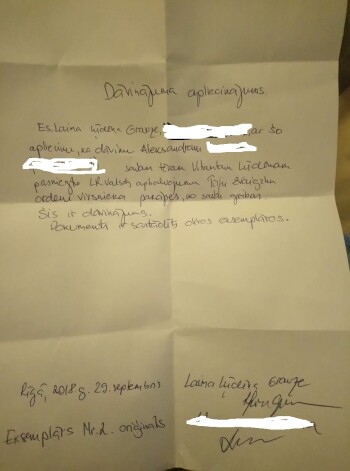 Dāvinājuma apliecinājums.
Es, Laima Lūcelva Grauze, ar šo
apliecinu, ka dāvinu Aleksandram
savam tēvam
pasniegto LR valsts apbalvojumu Triju Zvaigžņu
ordeni virsnieka pakāpes, no savas gribas
Šis ir dāvinājums.
Dokuments ir sastādīts divos eksemplāros.
Rīgā, 2018 g. 29. septembris
Laima Grauze
Eksemplārs Nr. 2. oriģināls